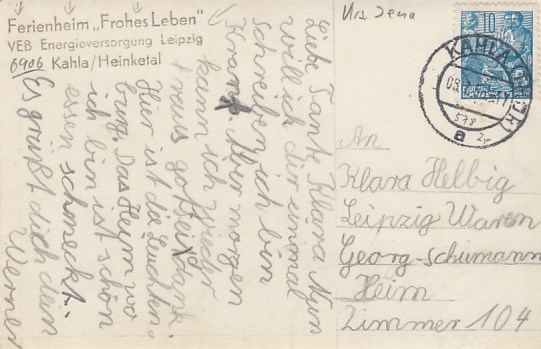 Ferienheim „Frohes Leben"
VEB Energieversorgung Leipzig
6906 Kahla/Heinketal
Urs Jena
10
KAHLA (THÜR)
a
Liebe Tante Klara Nun
will ich dir einmal
schreiben ich bin
Krank Aber morgen
kann ich Wieder
raus gotseidank
Hier ist die Leuchten,
burg. Das Heim wo
ich bin ist schön
essen schmeckt.
Es grüßt dich dein
Werner
An
Klara Helbig
Leipzig Waren
Georg-Schumann
Heim
Zimmer 104